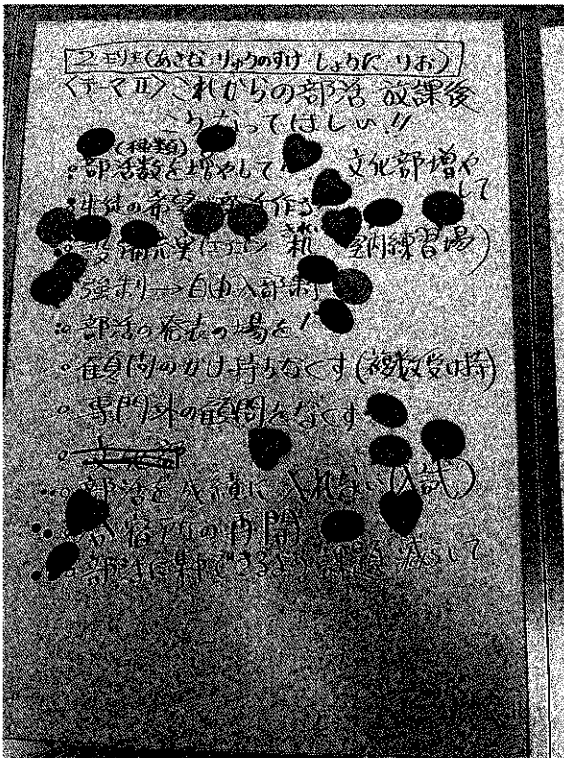 (あきな りゅうのすけ しょうた りお)
〈テーマⅡ〉これからの部活 放課後
こうなってほしい!!
(種類)
。部活数を増やして 文化部増や
して
。生徒の希望 部活作る
。設備充実 室内練習場)
強制→自由入部制
。部活の発表の場を!
。顧問のかけ持ちなくす(複数受け持)
。専門外の顧問をなくす
。部活を成績に入れない(入試)
合宿 の再開
。部活に集中できるよう 減らして